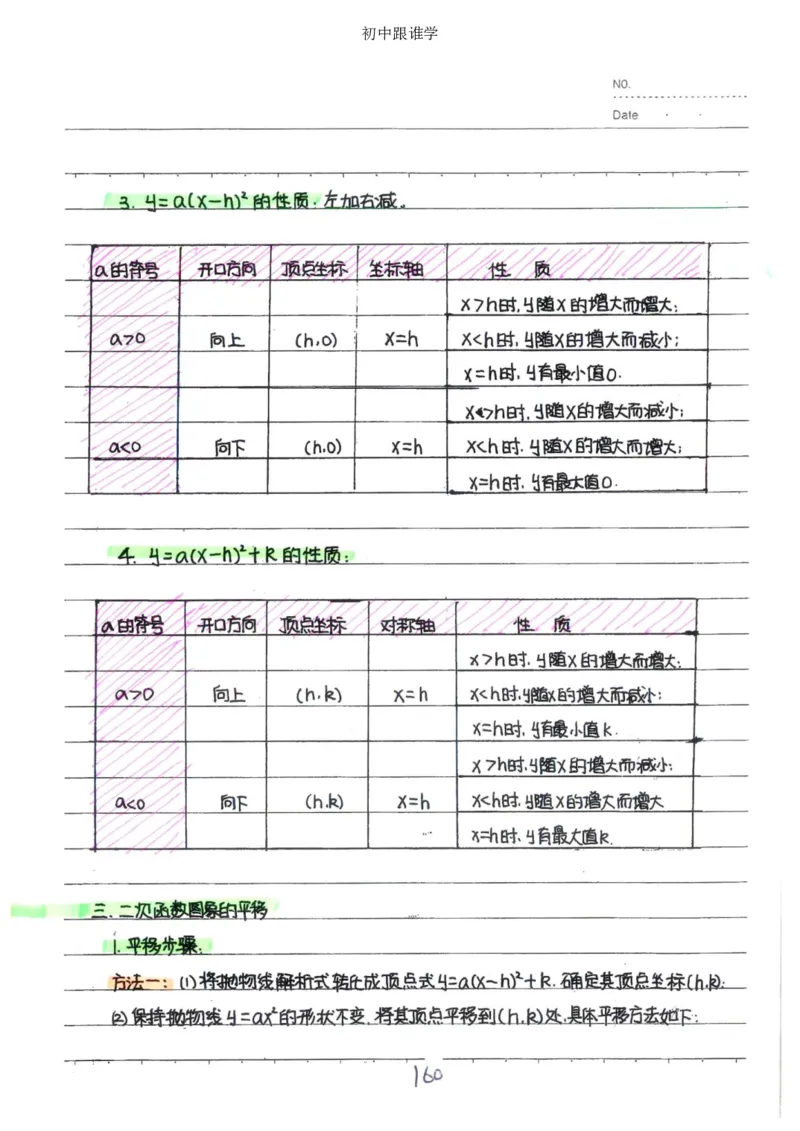 初中跟谁学
NO.
Date
3. y=a(x-h)²的性质:左加右减。
a的符号 开口方向 顶点坐标 坐标轴 性 质
x>h时,y随x的增大而增大;
a>0 向上 (h,0) x=h x<h时,y随x的增大而减小;
x=h时,y有最小值0.
x>h时,y随x的增大而减小;
a<0 向下 (h,0) x=h x<h时,y随x的增大而增大;
x=h时,y有最大值0.
4. y=a(x-h)²+k的性质:
a的符号 开口方向 顶点坐标 对称轴 性 质
x>h时,y随x的增大而增大;
a>0 向上 (h,k) x=h x<h时,y随x的增大而减小;
x=h时,y有最小值k.
x>h时,y随x的增大而减小;
a<0 向下 (h,k) x=h x<h时,y随x的增大而增大
x=h时,y有最大值k.
三、二次函数图象的平移
1.平移步骤:
方法一:(1)将抛物线解析式转化成顶点式y=a(x-h)²+k,确定其顶点坐标(h,k);
(2)保持抛物线y=ax²的形状不变,将其顶点平移到(h,k)处,具体平移方法如下:
160